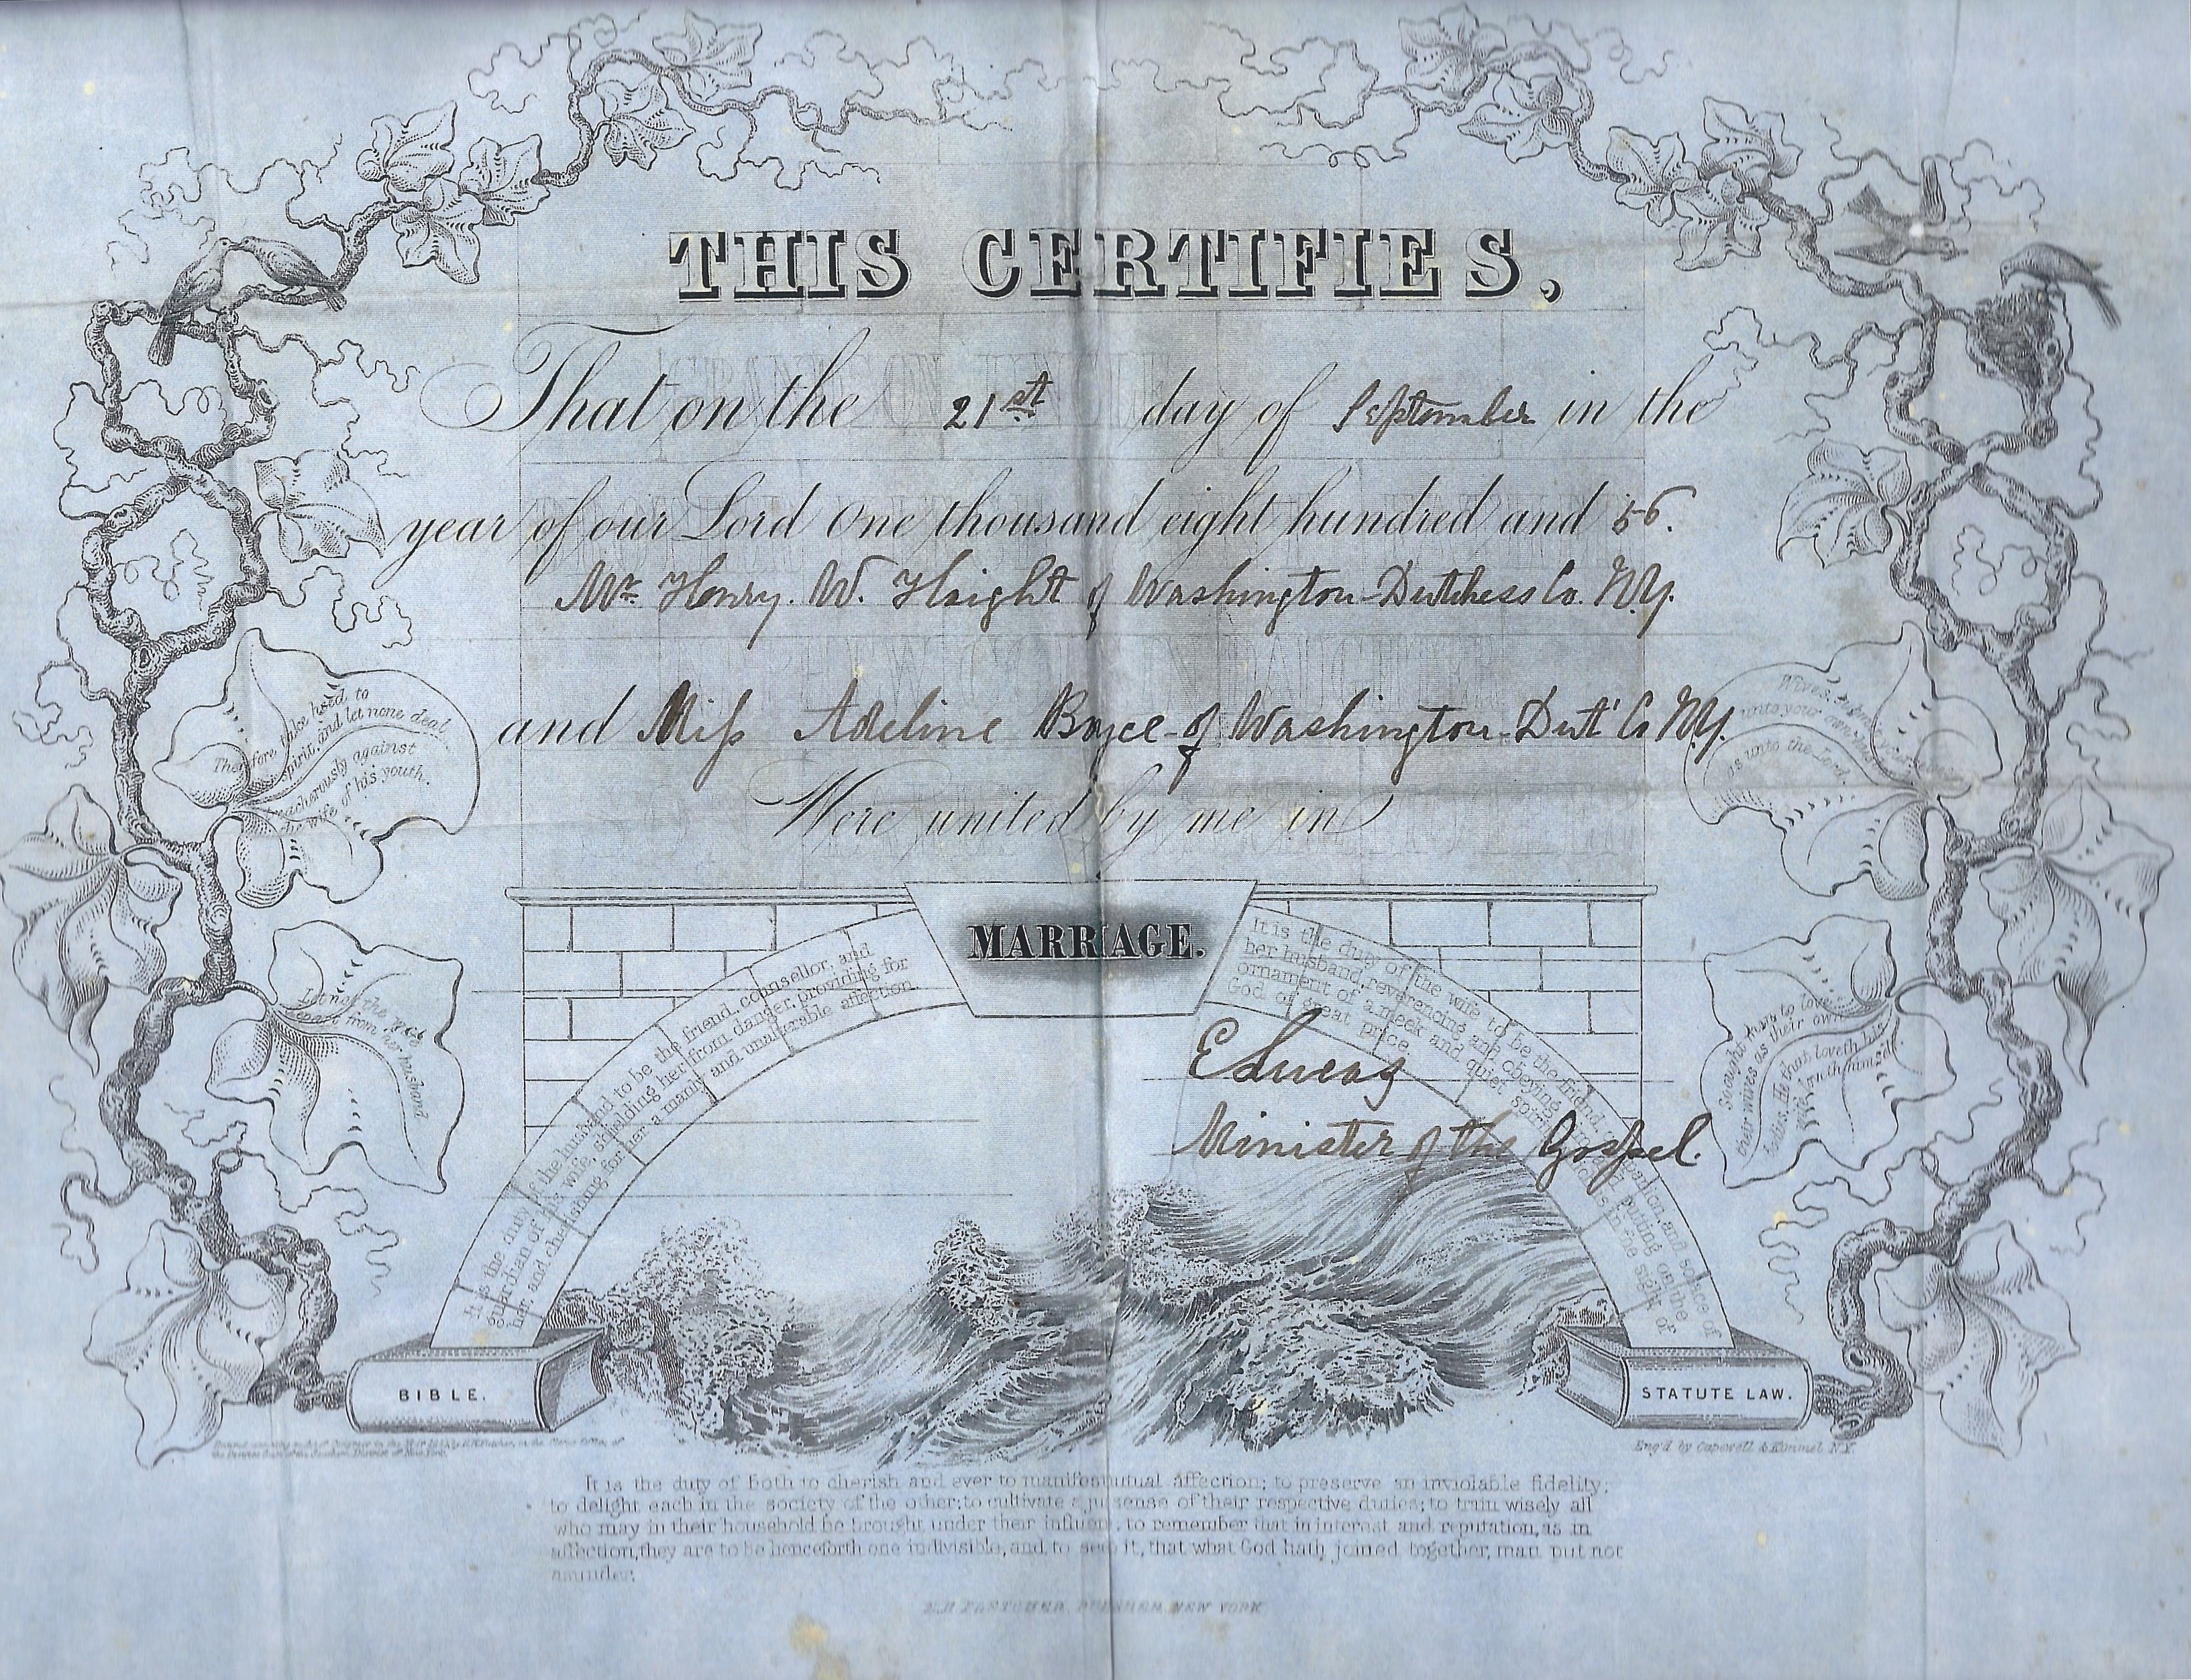 THIS CERTIFIES,
That on the 21st day of September in the
year of our Lord One thousand eight hundred and 56.
Mr. Henry. W. Haight of Washington-Dutchess Co. N.Y.
and Miss Adeline Boyce-of Washington-Dut' Co N.Y.
Were united by me in
MARRIAGE.
E Lucas
Minister of the Gospel.
Therefore take heed to
spirit, and let none deal
treacherously against
the wife of his youth.
Wives, submit yourselves
unto your own
as unto the Lord.
Let not the wife
depart from her husband
So ought men to love
their wives as their own
bodies. He that loveth his
wife loveth himself.
It is the duty of the husband to be the friend, counsellor, and
guardian of his wife, shielding her from danger, providing for
her and cherishing for her a manly and unalterable affection.
It is the duty of the wife to be the friend, and solace of
her husband, reverencing and obeying and putting on the
ornament of a meek and quiet spirit in the sight of
God of great price.
BIBLE.
STATUTE LAW.
Eng'd by Capewell & Kimmel N.Y.
It is the duty of both to cherish and ever to manifest mutual affection; to preserve an inviolable fidelity;
to delight each in the society of the other; to cultivate a just sense of their respective duties; to train wisely all
who may in their household be brought under their influen , to remember that in interest and reputation, as in
affection, they are to be henceforth one indivisible, and to see it, that what God hath joined together, man put not
asunder.
NEW YORK